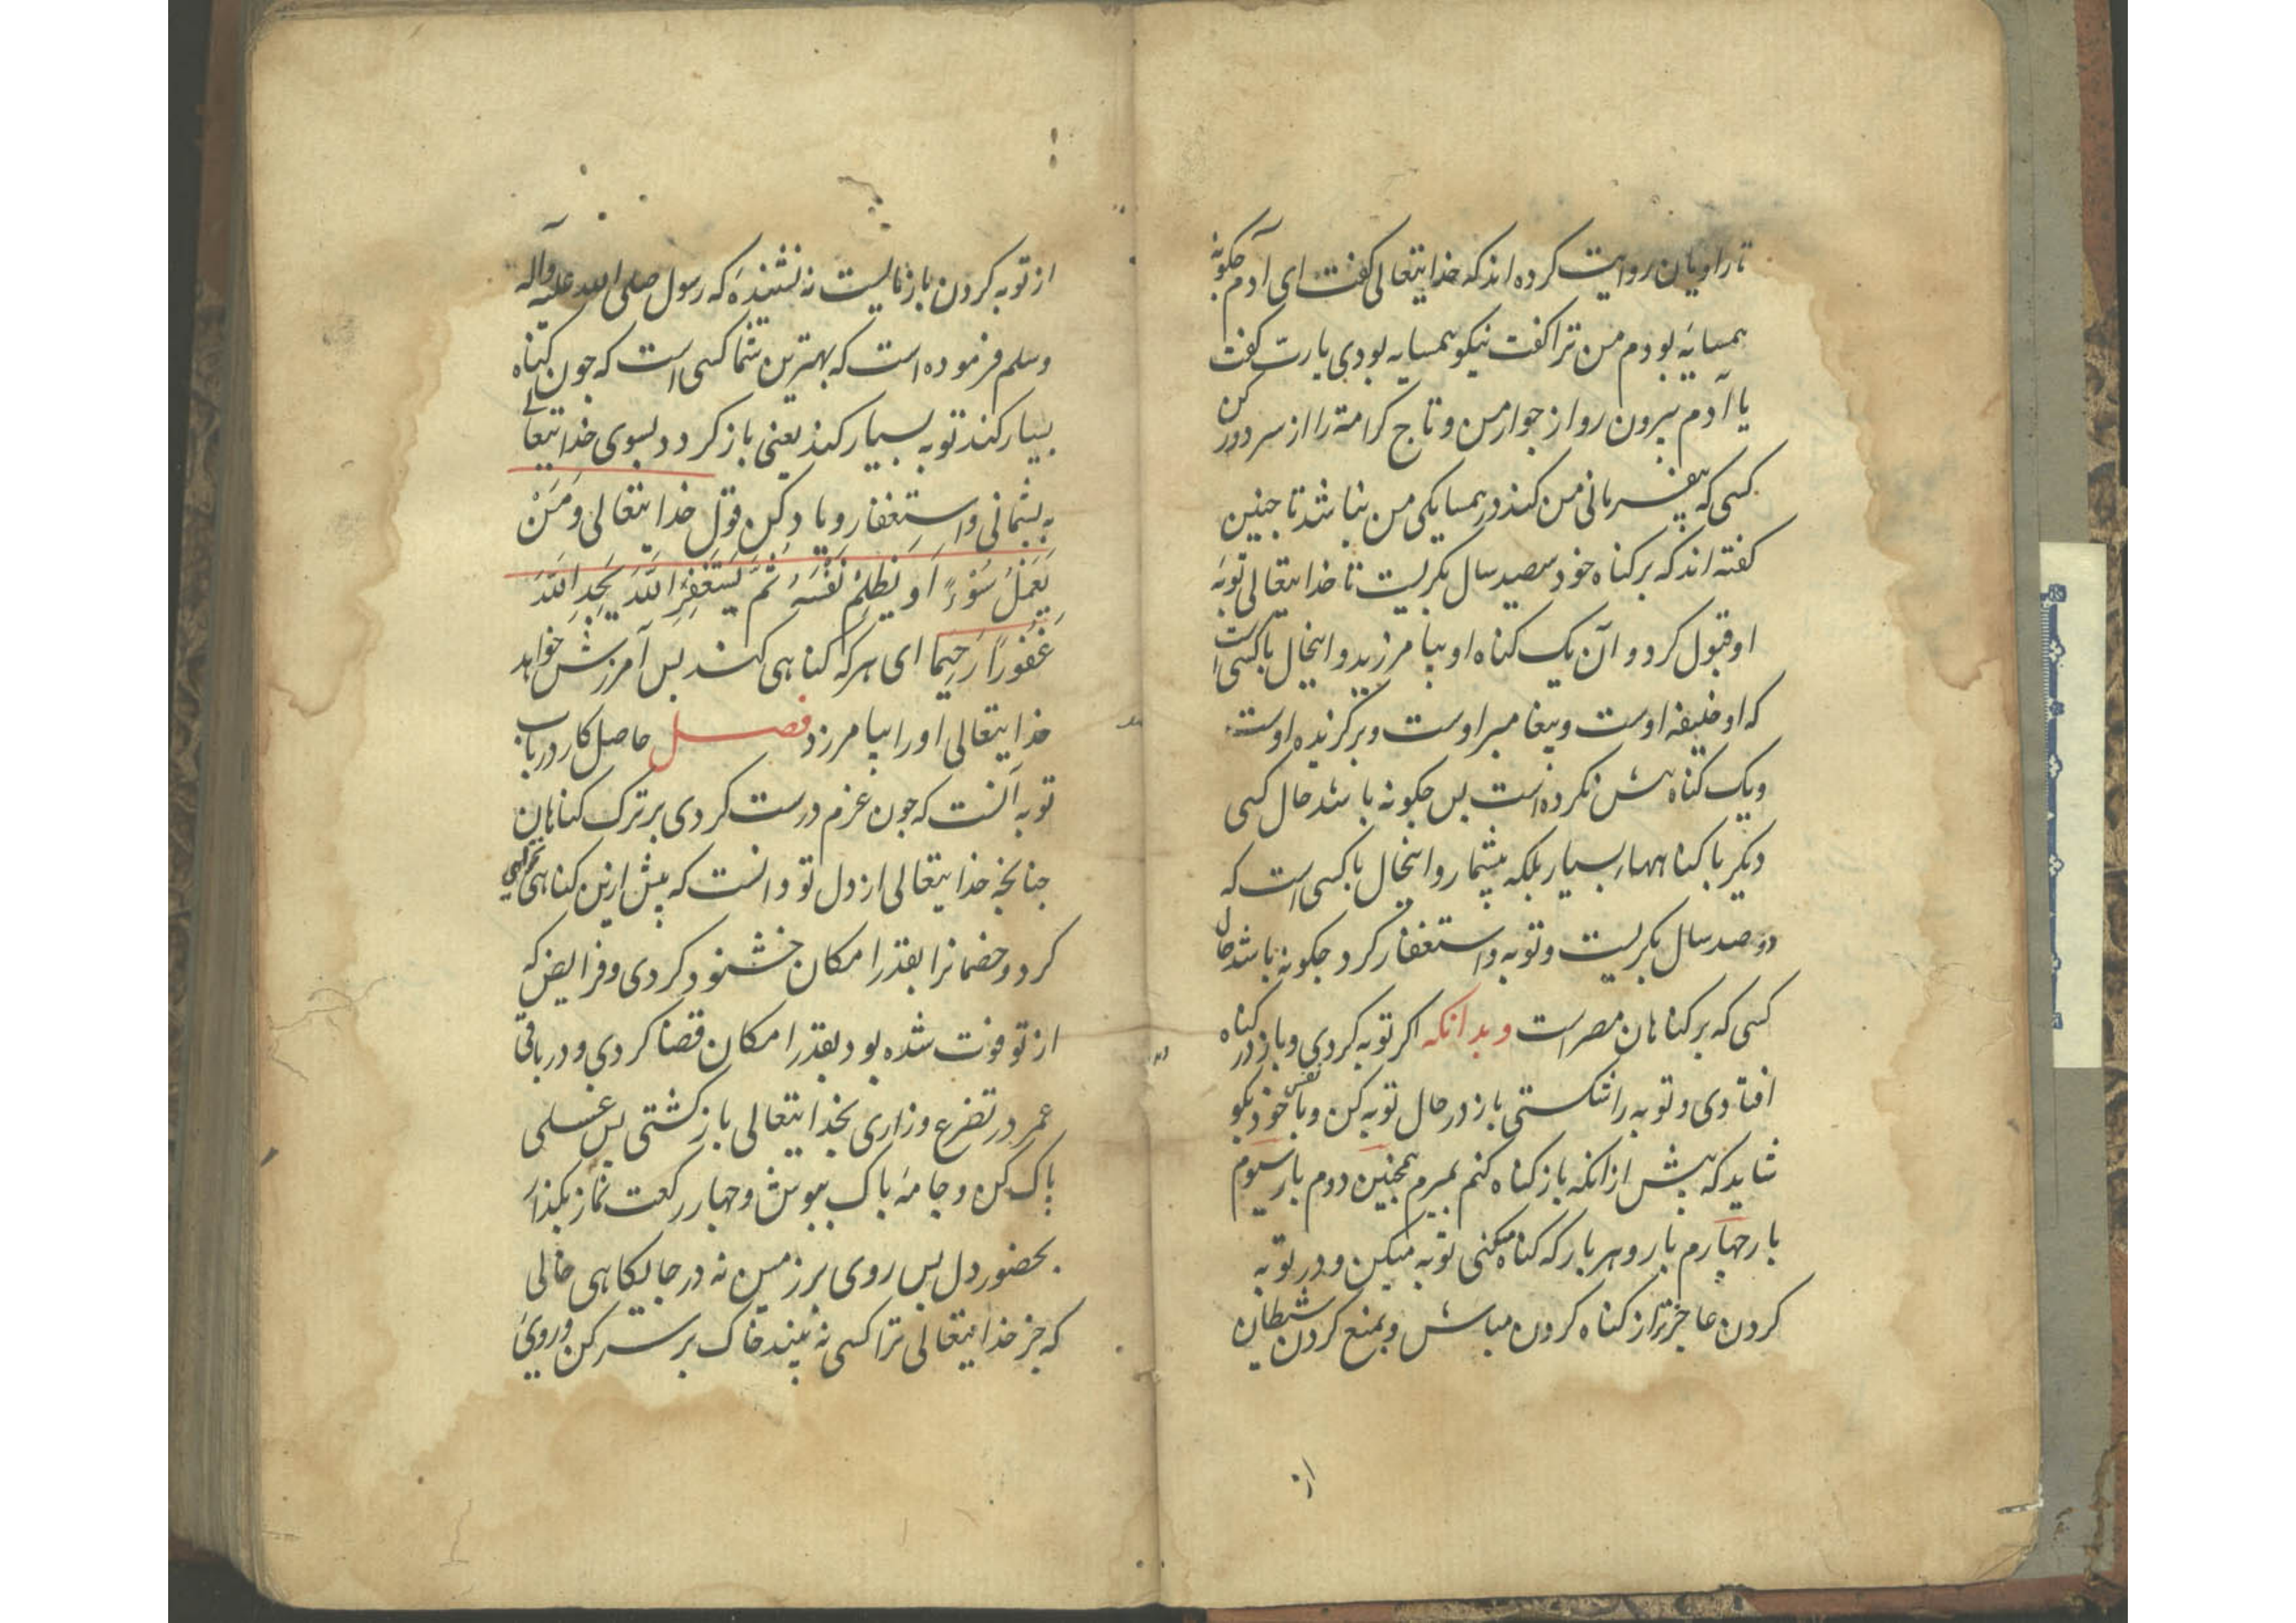 تا راویان روایت کرده اند که خدایتعالی کفت ای آدم چکونه
همسایهٔ بودم من ترا کفت نیکو همسایه بودی یارب کفت
یا آدم بیرون رو از جوار من و تاج کرامة را از سر دور کن
کسی که بیفرمانی من کند در همسایکی من نباشد تا جنین
کفته اند که بر کناه خود سیصد سال بکریست تا خدایتعالی توبهٔ
او قبول کرد و آن یک کناه او بیامرزید و اینحال با کسی است
که او خلیفه اوست و پیغامبر اوست و برکزیده اوست
و یک کناه بیش نکرده است بس جکونه باشد حال کسی
دیکر با کناهها بسیار بلکه بیشمار و اینحال با کسی است که
دوصد سال بکریست و توبه و استغفار کرد جکونه باشد حال
کسی که بر کناهان مصر است و بدانکه اکر توبه کردی و باز در کناه
افتادی و توبه را شکستی باز در حال توبه کن و با نفس خود بکو
شاید که بیش از انکه باز کناه کنم بمیرم همجنین دوم بار سیوم
بار جهارم بار و هر بار که کناه میکنی توبه میکن و در توبه
کردن عاجزتر از کناه کردن مباش و بمنع کردن شیطان
از
از توبه کردن باز مایست نه شنیدهٔ که رسول صلی الله علیه وآله
وسلم فرموده است که بهترین شما کسی است که جون کناه
بسیار کند توبه بسیار کند یعنی باز کردد بسوی خدایتعالی
به بشیمانی و استغفار و یاد کن قول خدایتعالی وَمَنْ
یَعْمَلْ سُوْءً اَو یَظلِمْ نَفْسَهُ ثُمَّ یَسْتَغْفِرِ اللّٰهَ یَجِدِ اللّٰهَ
غَفُورًا رَحِیمًا ای هر که کناهی کند بس آمرزش خواهد
خدایتعالی او را بیامرزد فصل حاصل کار در باب
توبه آنست که جون عزم درست کردی بر ترک کناهان
جنانجه خدایتعالی از دل تو دانست که بیش ازین کناهی نخواهی
کرد و خصمانرا بقدر امکان خشنود کردی و فرایض که
از تو فوت شده بود بقدر امکان قضا کردی و در باقی
عمر در تضرع و زاری بخدایتعالی باز کشتی بس غسلی
پاک کن و جامهٔ باک بپوش و جهار رکعت نماز بکذار
بحضور دل بس روی بر زمین نه در جایکاهی خالی
که جز خدایتعالی ترا کسی نه بیند خاک بر سر کن و روی